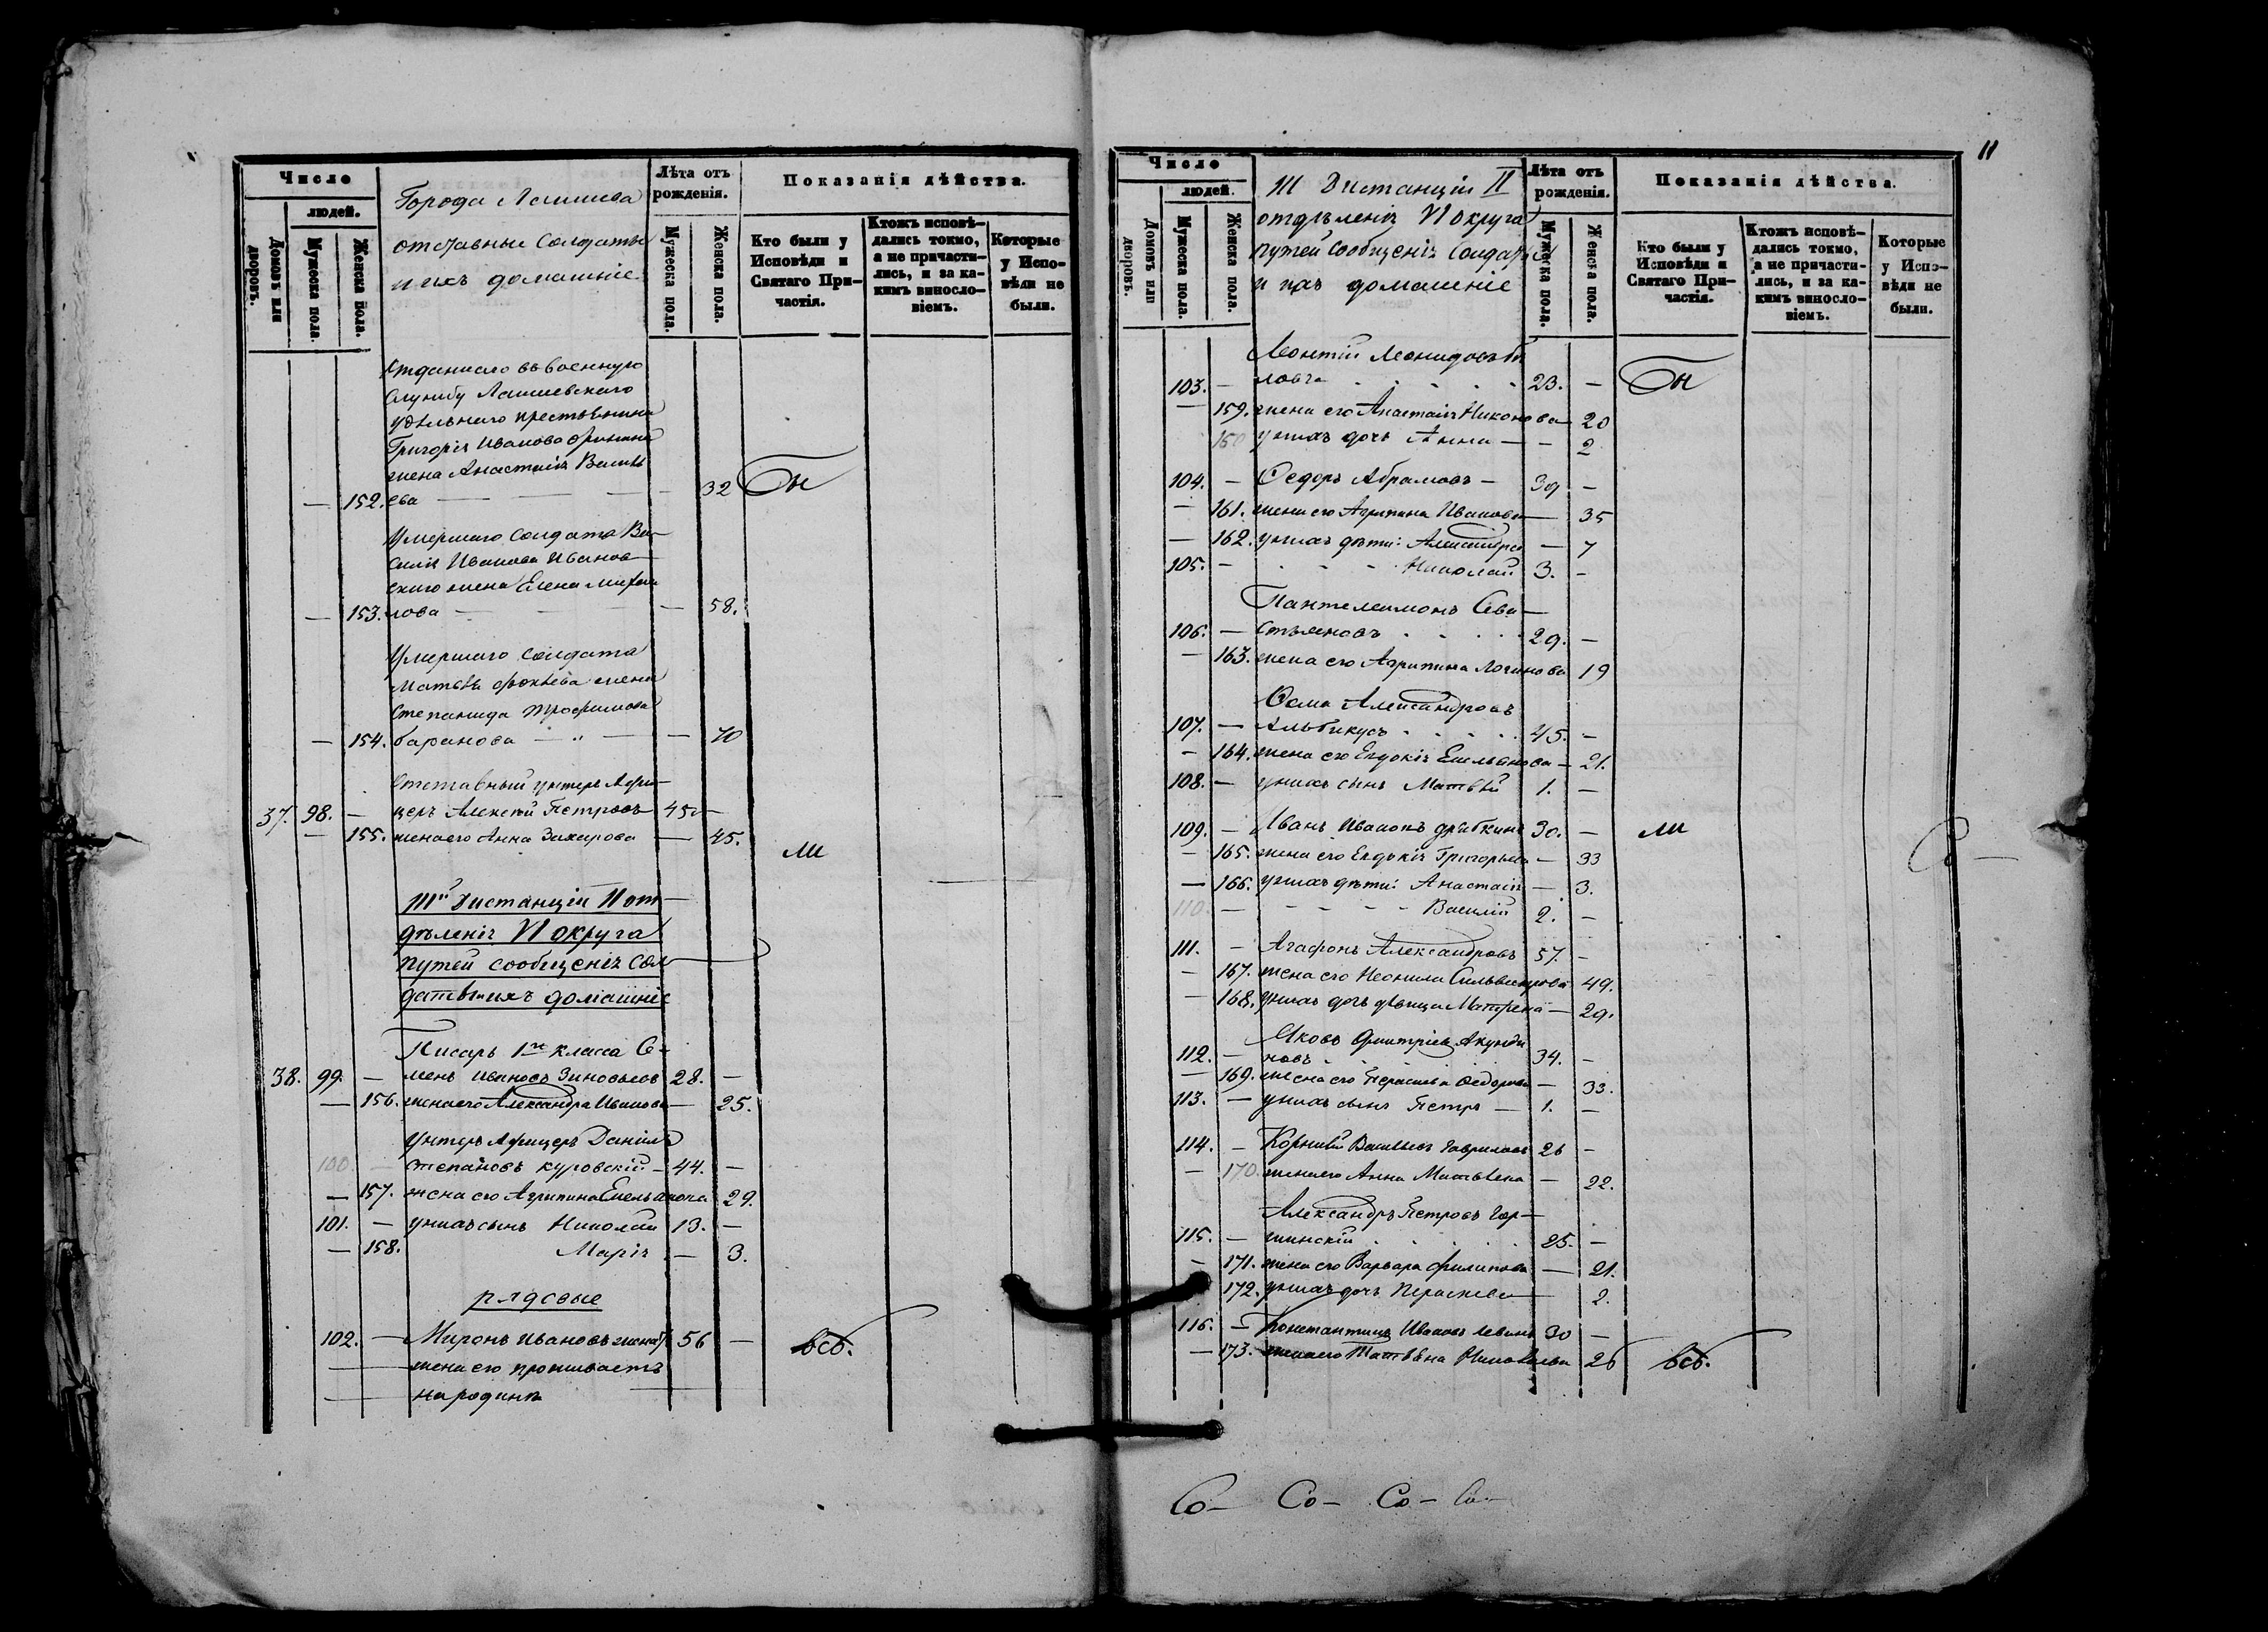 Число
людей.
Домовъ или дворовъ.
Мужеска пола.
Женска пола.
Города Лаишева
отставные Солдаты
и ихъ домашніе
Лѣта отъ рожденія.
Мужеска пола.
Женска пола.
Показанія дѣйства.
Кто были у Исповѣди и Святаго При-
частія.
Ктожъ исповѣ-
дались токмо,
а не причасти-
лись, и за ка-
кимъ виносло-
віемъ.
Которые
у Испо-
вѣди не
были.
Отданнаго въ военную
службу Лаишевскаго
удѣльнаго крестьянина
Григорія Иванова
жена Анастасія Василь
— 152. ева — — 32 Бы
Умершаго Солдата Ва-
силія Иванова Иванов-
скаго жена Елена Михаи
— 153. лова — — 58.
Умершаго солдата
Матвѣя Фокѣева жена
Степанида Трофимова
— 154. баранова — „ — — 70
Отставный унтеръ Афи-
37. 98. — церъ Алексѣй Петровъ 45 —
— 155. жена его Анна Захарова — 45.
ли
III й дистанціи II от-
дѣленія VI округа
путей сообщенія Сол-
даты и ихъ домашніе
Писарь 1го класса Се-
38. 99. — менъ Ивановъ Зиновьевъ 28. —
— 156. жена его Александра Иванова — 25.
Унтеръ Афицеръ Данилъ
100. — Степановъ Куровскій — 44. —
— 157. жена его Агрипина Емельянова 29.
101. — у нихъ сынъ Николай 13. —
— 158. Марія — 3.
рядовые
102. — Миронъ Ивановъ женатъ 56 — всѣ.
— жена его проживаетъ
— на родинѣ
11
Число
людей.
Домовъ или дворовъ.
Мужеска пола.
Женска пола.
III Дистанціи II
отдѣленія VI округа
путей Сообщенія Солдаты
и ихъ домашніе
Лѣта отъ рожденія.
Мужеска пола.
Женска пола.
Показанія дѣйства.
Кто были у
Исповѣди и
Святаго При-
частія.
Ктожъ исповѣ-
дались токмо,
а не причасти-
лись, и за ка-
кимъ виносло-
віемъ.
Которые
у Испо-
вѣди не
были.
Леонтій Леонидовъ
103. — 23. — Бы
— 159. жена его Анастасія Никонова — 20
160 у нихъ дочь Анна — — 2
104. — Ѳедоръ Абрамовъ — 39 —
— 161. жена его Агрипина Иванова — 35
— 162. у нихъ дѣти: Александра — 7
105. — Николай 3. —
Пантелеимонъ Сева-
106. — стьяновъ 29. —
— 163. жена его Агрипина Логинова 19
Ѳома Александровъ
107. — Альбикусъ 45. —
— 164. жена его Евдокія Емельянова — 21.
108. — у нихъ сынъ Матвѣй 1. —
109. — Иванъ Ивановъ 30. — ли
— 165. жена его Евдокія Григорьева — 33
— 166. у нихъ дѣти: Анастасія — 3.
110. — Василій 2. —
Со —
111. — Агафонъ Александровъ 57. —
— 167. жена его Неонила Сильвестрова 49.
— 168. у нихъ дочь дѣвица Матрена — 29.
Яковъ Дмитріевъ Акунди
112. — новъ 34. —
— 169. жена его Ѳедорова — 33.
113. — у нихъ сынъ Петръ — 1. —
114. — Корнилій Васильевъ Гавриловъ 26 —
— 170. жена его Анна Матвѣева — 22.
Александръ Петровъ Гор-
115. — шинскій 25. —
— 171. жена его Варвара Филипова — 21.
172. у нихъ дочь Параскева 2.
116. — Константинъ Ивановъ Левинъ 30 —
— 173. жена его Татьяна 26 всѣ.
Со — Со — Со — Со —